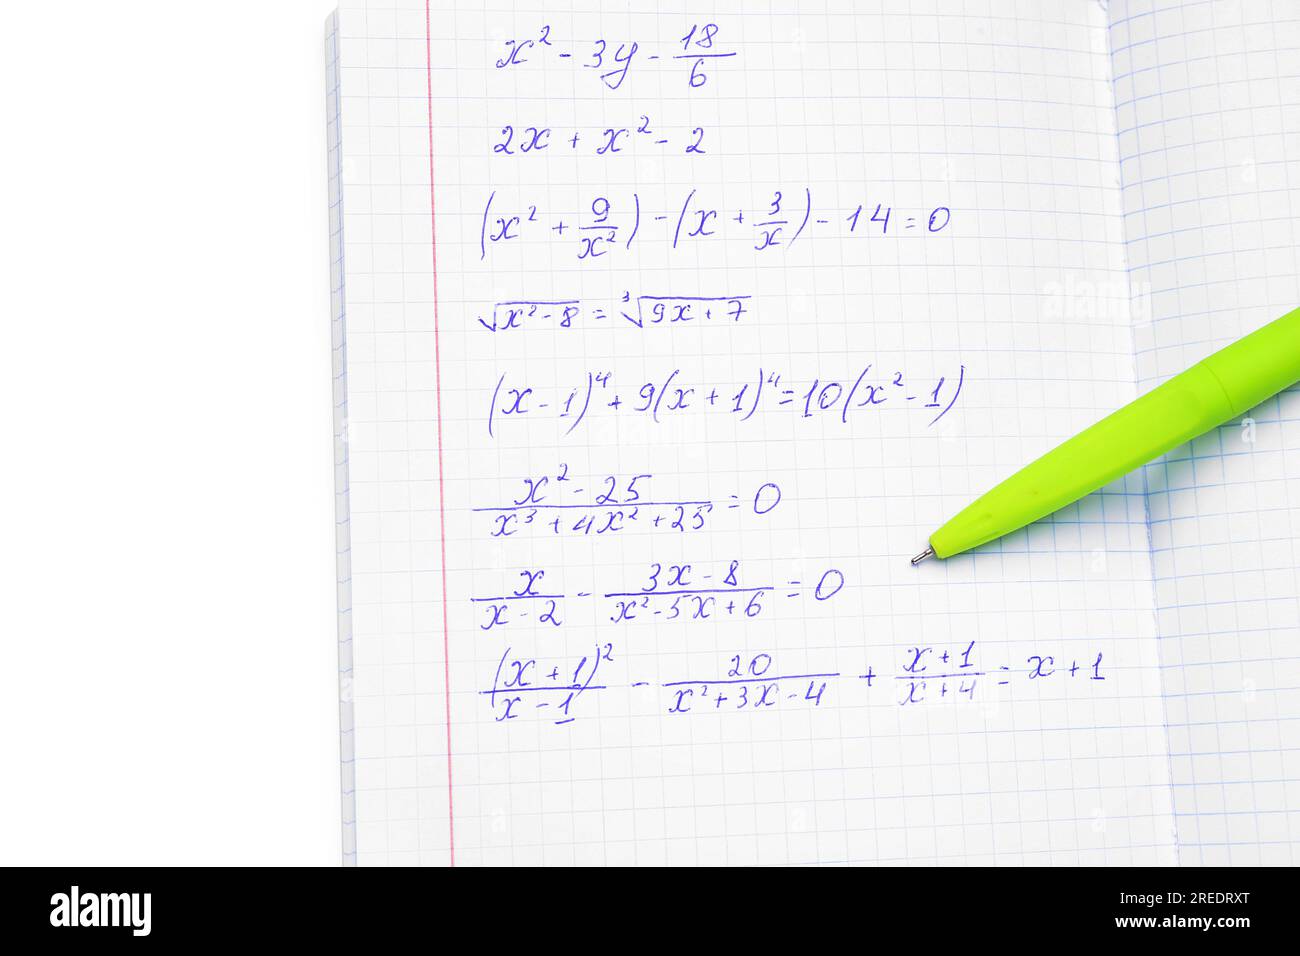 x² - 3y - 18/6
2x + x² - 2
(x² + 9/x²) - (x + 3/x) - 14 = 0
√(x² - 8) = ∛(9x + 7)
(x - 1)⁴ + 9(x + 1)⁴ = 10(x² - 1)
(x² - 25)/(x³ + 4x² + 25) = 0
x/(x - 2) - (3x - 8)/(x² - 5x + 6) = 0
(x + 1)²/(x - 1) - 20/(x² + 3x - 4) + (x + 1)/(x + 4) = x + 1
alamy
alamy
Image ID: 2REDRXT
www.alamy.com